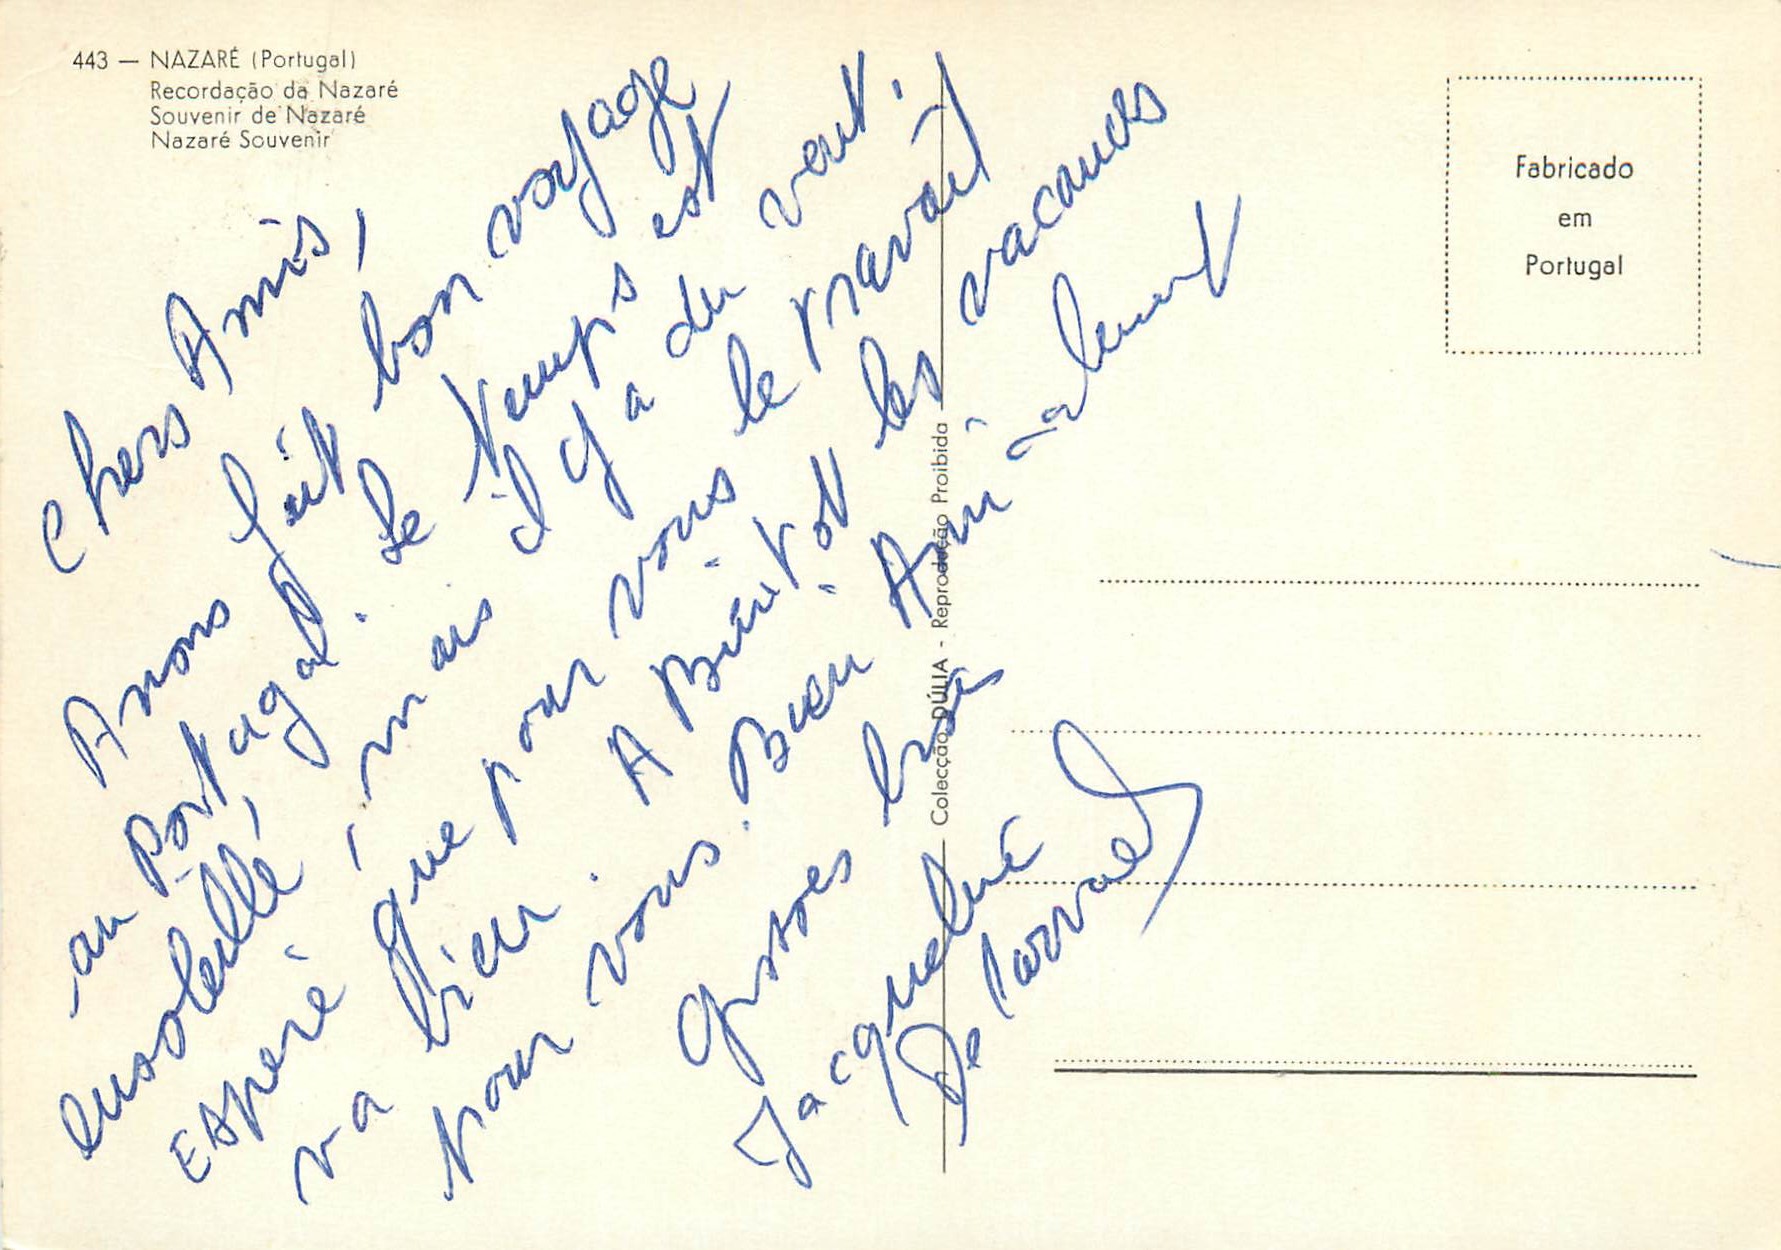 443 — NAZARÉ (Portugal)
Recordação da Nazaré
Souvenir de Nazaré
Nazaré Souvenir
Fabricado
em
Portugal
Colecção DÚLIA - Reprodução Proibida
Chers Amis,
Avons fait bon voyage
au Portugal. Le temps est
ensoleillé, mais il y a du vent.
Espère que pour vous le travail
va bien. A Bientôt les vacances
pour vous. Bien Amicalement
Grosses bises
Jacqueline